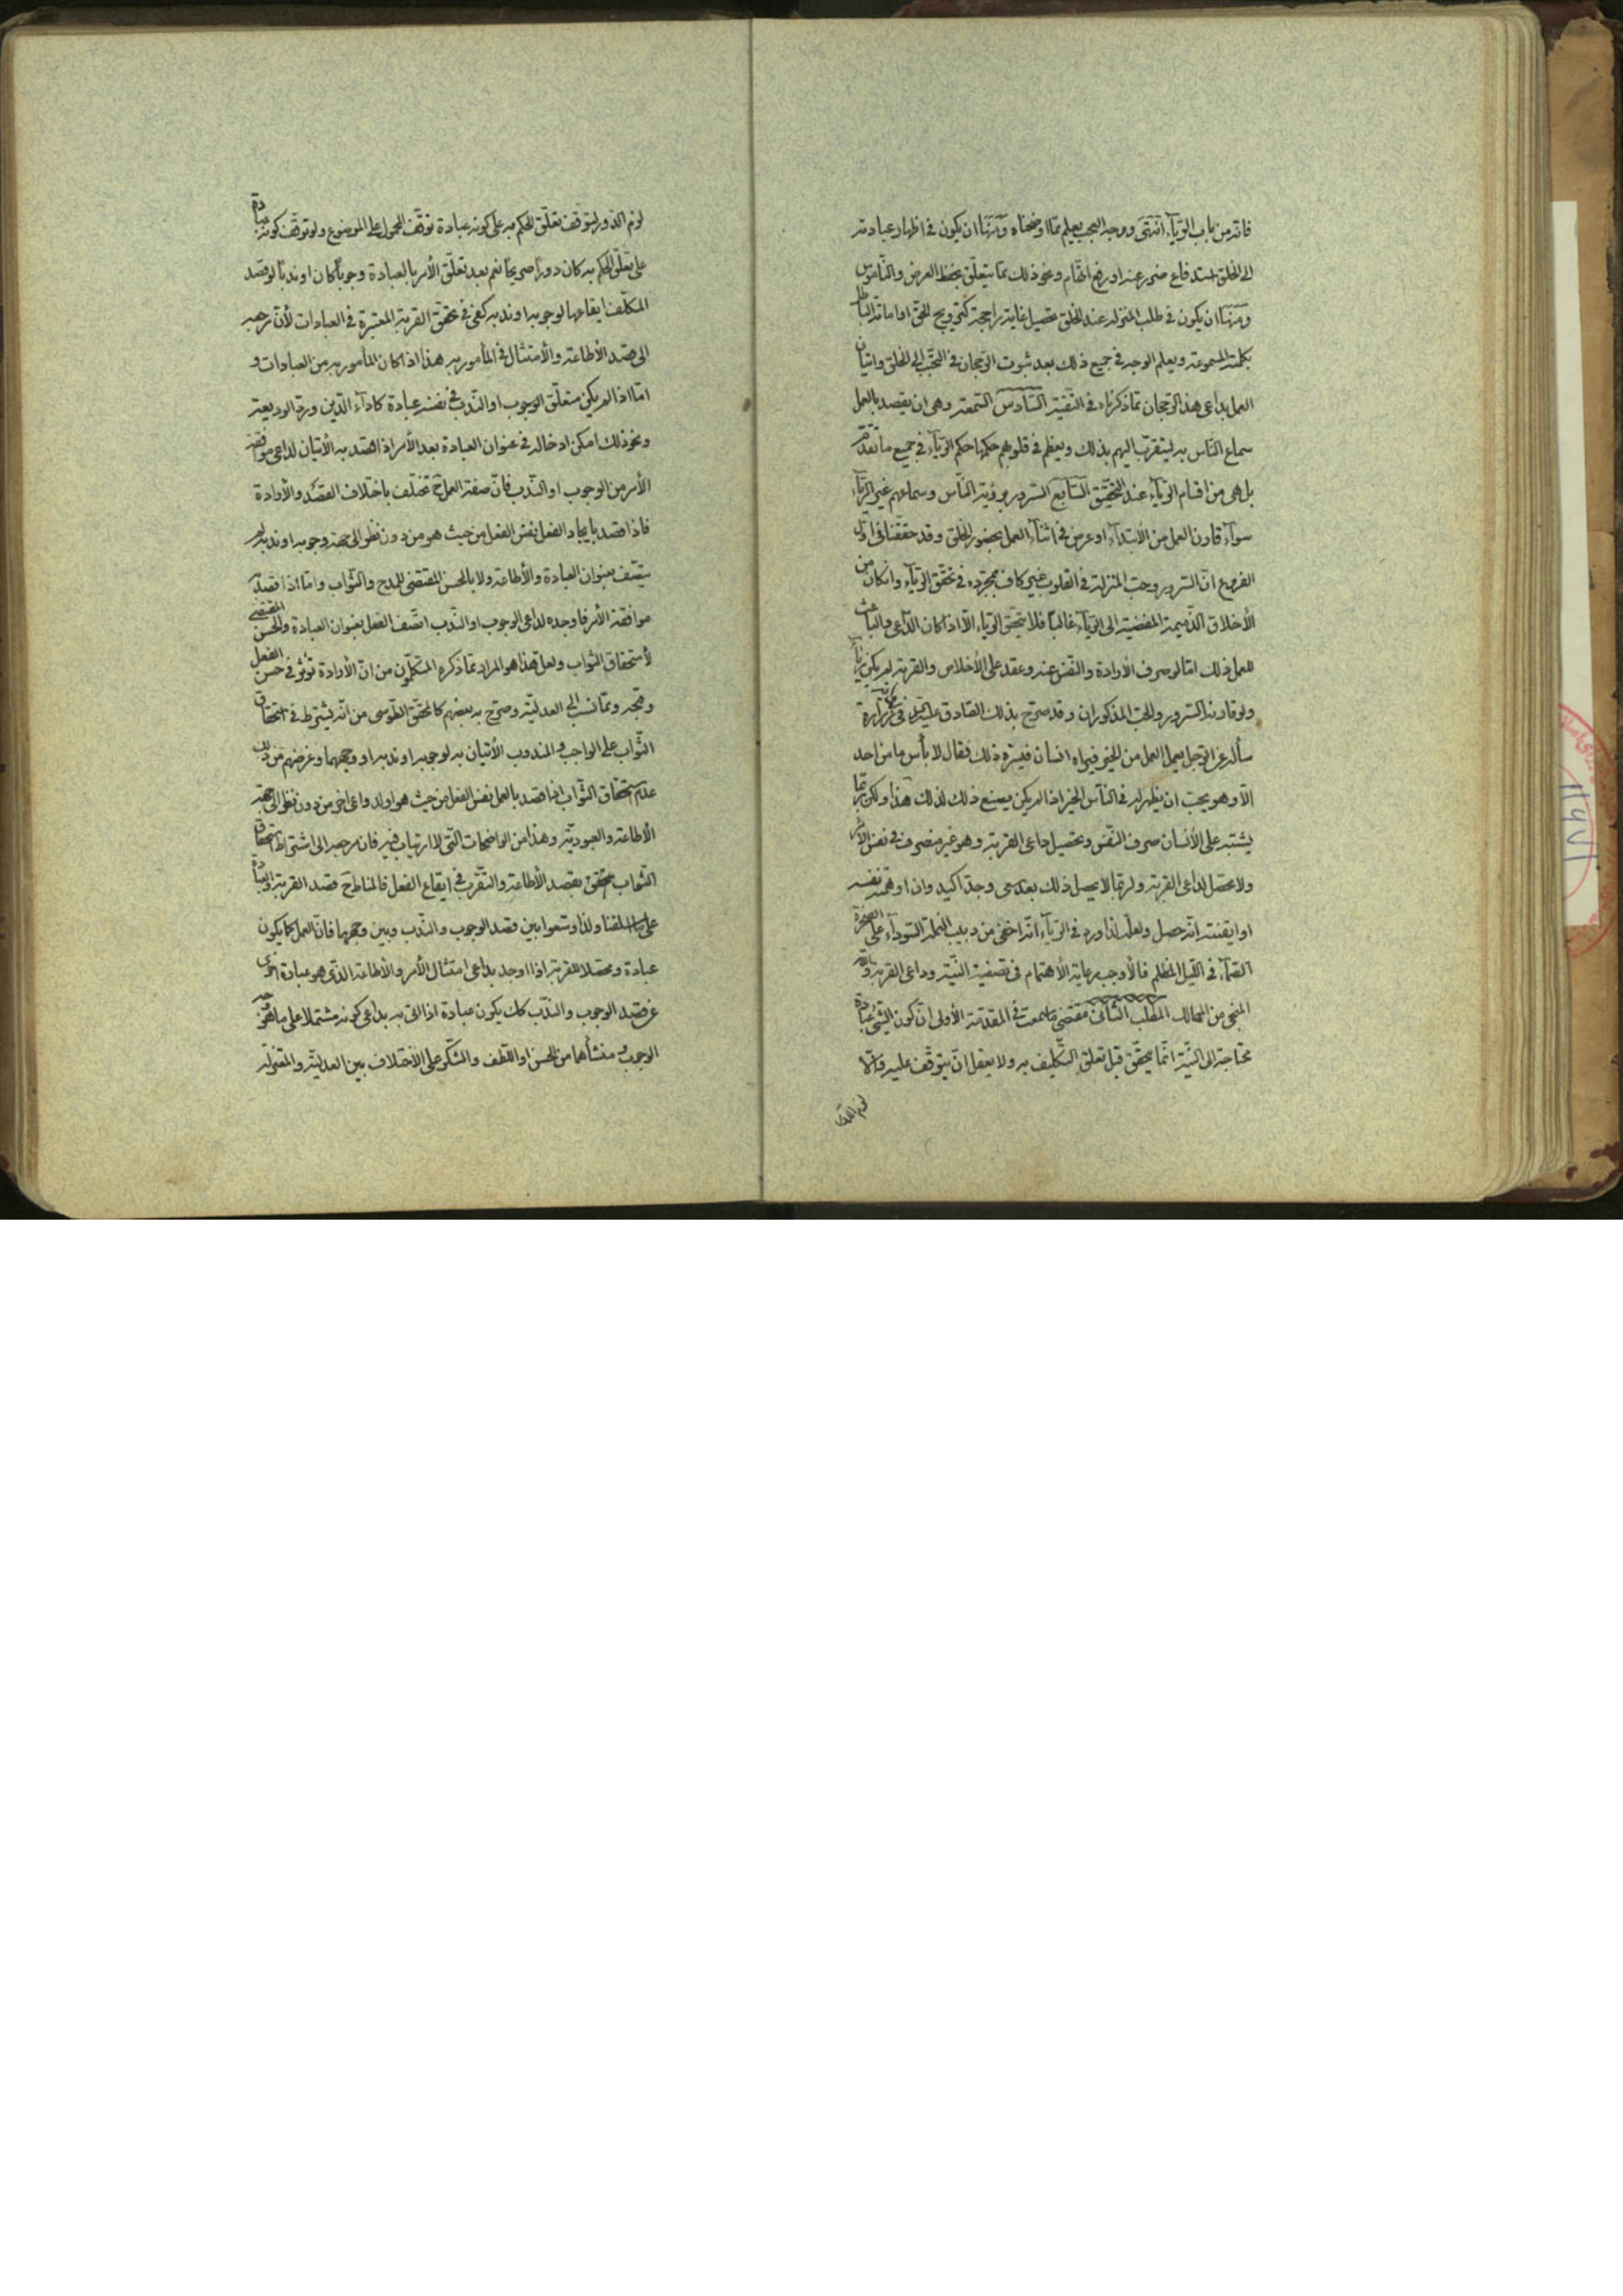 فانه من باب الريآء انتهى ووجه العجب يعلم مما اوضحناه ومنها ان يكون في اظهار عبادته
الى الخلق استدفاع ضرر عنه او رفع اتهام ونحو ذلك مما يتعلق بحفظ العرض والناموس
ومنها ان يكون في طلب المنزلة عند الخلق تحصيل غاية راجحة كترويج الحق او اماتة الباطل
بكلمته المسموعة ويعلم الوجه في جميع ذلك بعد ثبوت الرجحان في التحبب الى الخلق واتيان
العمل بداعي هذا الرجحان مما ذكرناه في التقية السادس السمعة وهي ان يقصد بالعمل
سماع الناس به ليتقرب اليهم بذلك ويعظم في قلوبهم حكمها حكم الريآء في جميع ما تقدم
بل هي من اقسام الريآء عند التحقيق السابع السرور برؤية الناس وسماعهم غير الريآء
سوآء قارن العمل من الابتدآء او عرض في اثنآء العمل بحضور الخلق وقد حققنا في اول
الفروع ان السرور وحب المنزلة في القلوب غير كاف بمجرده في تحقق الريآء وانكان من
الأخلاق الذميمة المفضية الى الريآء غالباً فلا يتحقق الريآء الا اذا كان الداعي والباعث
للعمل ذلك امّا لو صرف الأرادة والنفس عنه وعقد على الأخلاص والقربة لم يكن ريآء
ولو قارنه السرور والحب المذكوران وقد صرح بذلك الصادق عليه السلم في خبر زرارة
سأله عن الرجل يعمل العمل من الخير فيراه انسان فيسره ذلك فقال لا بأس ما من احد
الا وهو يحب ان يظهر له في الناس الخير اذا لم يكن يصنع ذلك لذلك هذا ولكن ربما
يشتبه على الأنسان صرف النفس وتحصيل داعي القربة وهو غير منصرف في نفس الأمر
ولا محصل لداعي القربة ولربما لا يحصل ذلك بعد سعى وجد اكيد وان اوهمته نفسه
او ايقنته انه حصل ولعله لذا ورد في الريآء انه اخفى من دبيب النملة السودآء على الصخرة
الصمآء في الليل المظلم فالأوجب رعاية الأهتمام في تصفية النية وداعي القربة والله
المنجى من المهالك المطلب الثاني مقتضى ما سمعت في المقدمة الأولى ان كون الشئ عبادة
محتاجة الى النية انما يتحقق قبل تعلق التكليف به ولا يعقل ان يتوقف عليه والا
لزم الدور
لزم الدور ليتوقف تعلق الحكم به على كونه عبادة توقف المحمول على الموضوع ولو توقف كونه عبادة
على تعلق الحكم به كان دوراً صريحاً نعم بعد تعلق الأمر بالعبادة وجوباً كان او ندباً لو قصد
المكلف ايقاعها لوجوبه او ندبه كفى في تحقق القربة المعتبرة في العبادات لأن مرجعه
الى قصد الأطاعة والأمتثال في المأمور به هذا اذا كان المأمور به من العبادات و
امّا اذا لم يكن متعلق الوجوب او الندب في نفسه عبادة كادآء الدين ورد الوديعة
ونحو ذلك امكن ادخاله في عنوان العبادة بعد الأمر اذا قصد به الأتيان لداعي موافقة
الأمر من الوجوب او الندب فان صفة العمل ح تختلف باختلاف القصد والأرادة
فاذا قصد بايجاد الفعل نفس الفعل من حيث هو من دون نظر الى جهة وجوبه او ندبه لم
يتصف بعنوان العبادة والأطاعة ولا بالحسن المقتضى للمدح والثواب وامّا اذا قصد
موافقة الأمر فاوجده لداعي الوجوب او الندب اتصف الفعل بعنوان العبادة والحسن المقتضى
لأستحقاق الثواب ولعل هذا هو المراد مما ذكره المتكلمون من ان الأرادة تؤثر في حسن الفعل
وقبحه ومما نسب الى العدلية وصرح به بعضهم كالمحقق الطوسي من انه يشترط في استحقاق
الثواب على الواجب والمندوب الأتيان به لوجوبه او ندبه او وجههما وغرضهم من ذلك
عدم استحقاق الثواب اذا قصد بالعمل نفس الفعل من حيث هو او لدواعي اخر من دون نظر الى جهة
الأطاعة والعبودية وهذا من الواضحات التي لا ارتياب فيه فان مرجعه الى اشتراط استحقاق
الثواب بقصد الأطاعة والتقرب في ايقاع الفعل فالمناط ح قصد القربة والعبادة
على ما اسلفنا ولذا وسّعوا بين قصد الوجوب والندب وبين وجهها فان العمل كما يكون
عبادة ومحصلا للقربة اذا اوجد بداعي امتثال الأمر والأطاعة الذي هو عبادة اخرى
عن قصد الوجوب والندب كك يكون عبادة اذا اتى به بداعي كونه مشتملا على ما هو وجه
الوجوب ومنشأهما من الحسن او اللطف والشكر على الأختلاف بين العدلية والمعتزلة